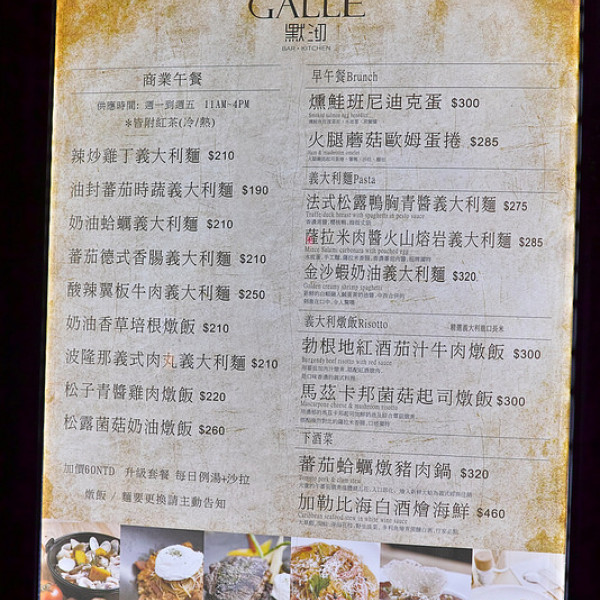 GALLE
默沏
BAR • KITCHEN
商業午餐
供應時間: 週一到週五 11AM~4PM
＊皆附紅茶(冷/熱)
辣炒雞丁義大利麵 $210
油封蕃茄時蔬義大利麵 $190
奶油蛤蠣義大利麵 $210
蕃茄德式香腸義大利麵 $210
酸辣翼板牛肉義大利麵 $250
奶油香草培根燉飯 $210
波隆那義式肉丸義大利麵 $210
松子青醬雞肉燉飯 $220
松露菌菇奶油燉飯 $260
加價60NTD 升級套餐 每日例湯+沙拉
燉飯 麵要更換請主動告知
早午餐Brunch
燻鮭班尼迪克蛋 $300
Smoked salmon egg benedict
火腿蘑菇歐姆蛋捲 $285
Ham & mushroom omelet
義大利麵Pasta
法式松露鴨胸青醬義大利麵 $275
Truffle duck breast with spaghetti in pesto sauce
薩拉米肉醬火山熔岩義大利麵 $285
金沙蝦奶油義大利麵 $320
Golden creamy shrimp spaghetti
義大利燉飯Risotto
勃根地紅酒茄汁牛肉燉飯 $300
Burgundy beef risotto with red sauce
馬茲卡邦菌菇起司燉飯 $300
Mascarpone cheese & mushroom risotto
下酒菜
蕃茄蛤蠣燉豬肉鍋 $320
Tomato pork & clam stew
加勒比海白酒燴海鮮 $460
Caribbean seafood stew in white wine sauce